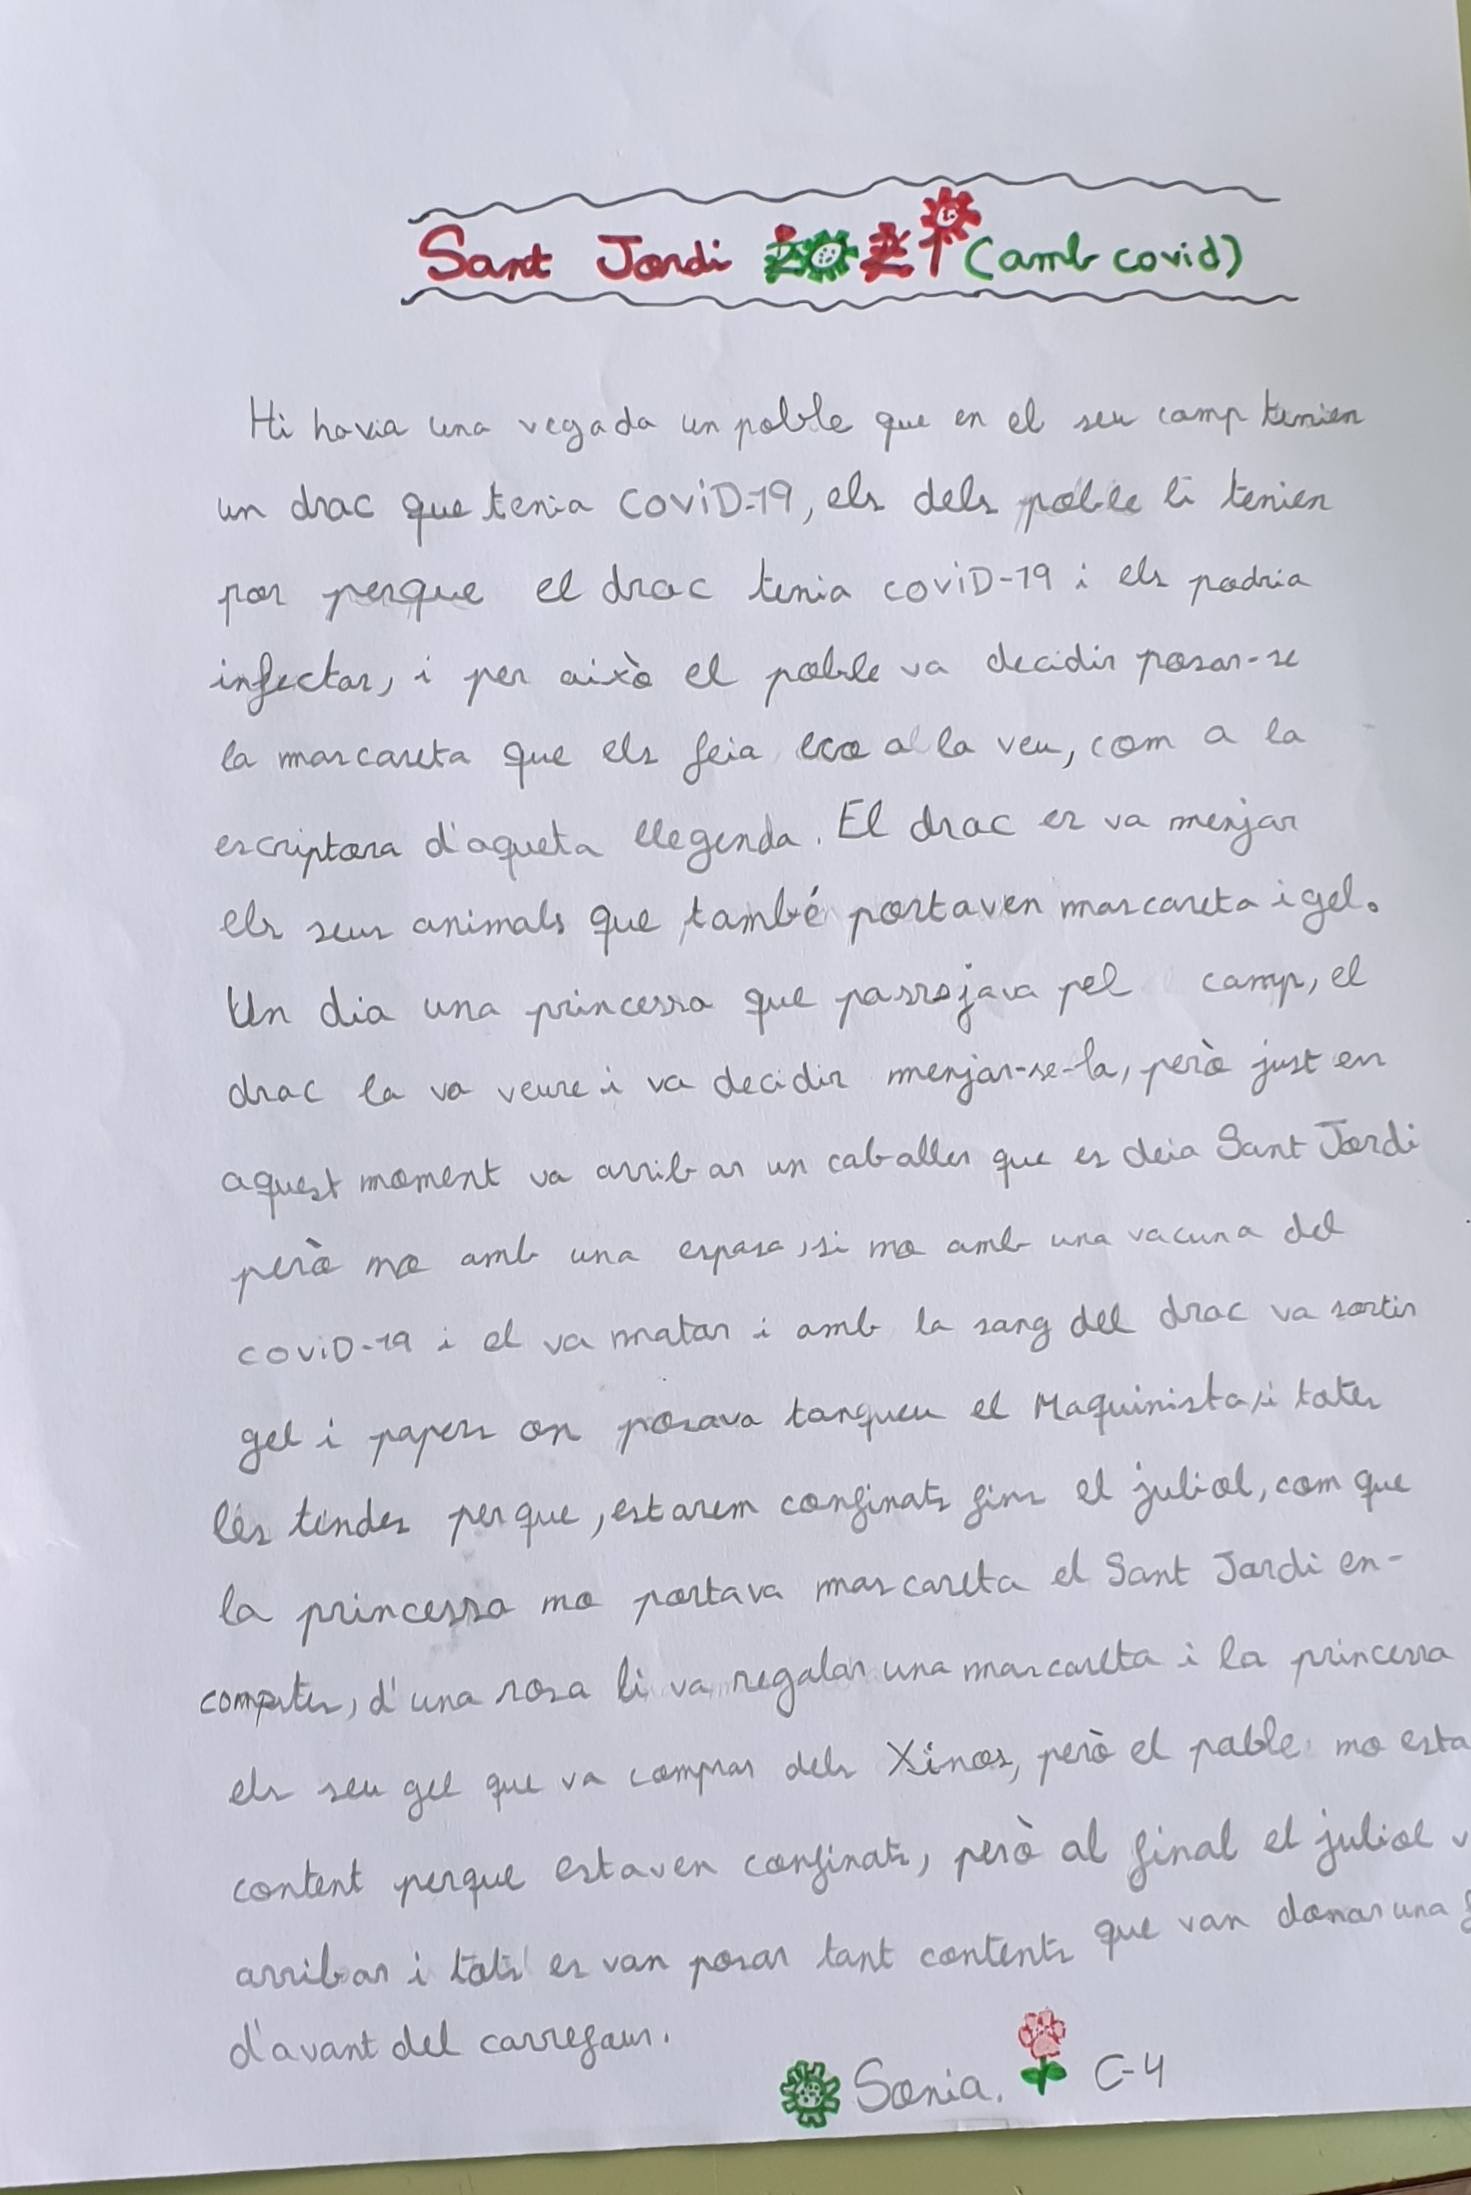 Sant Jordi 2021 (amb covid)
Hi havia una vegada un poble que en el seu camp tenien
un drac que tenia COViD-19, els dels poble li tenien
por perque el drac tenia COViD-19 i els podria
infectar, i per això el poble va decidir posar-se
la mascareta que els feia eco a la veu, com a la
escriptora d'aqueta llegenda. El drac es va menjar
els seus animals que també portaven mascareta i gel.
Un dia una princessa que passejava pel camp, el
drac la va veure i va decidir menjar-se-la, però just en
aquest moment va arribar un caballer que es deia Sant Jordi
però no amb una espasa, si no amb una vacuna del
COViD-19 i el va matar i amb la sang del drac va sortir
gel i papers on posava tanqueu el Maquinista, i totes
les tendes perque, estarem confinats fins el juliol, com que
la princessa no portava mascareta el Sant Jordi en-
comptes, d'una rosa li va regalar una mascareta i la princessa
els seu gel que va comprar dels Xinos, però el poble no esta
content perque estaven confinats, però al final el juliol v
arribar i tots es van posar tant contents que van donar una
d'avant del carrefaur.
Sonia. C-4